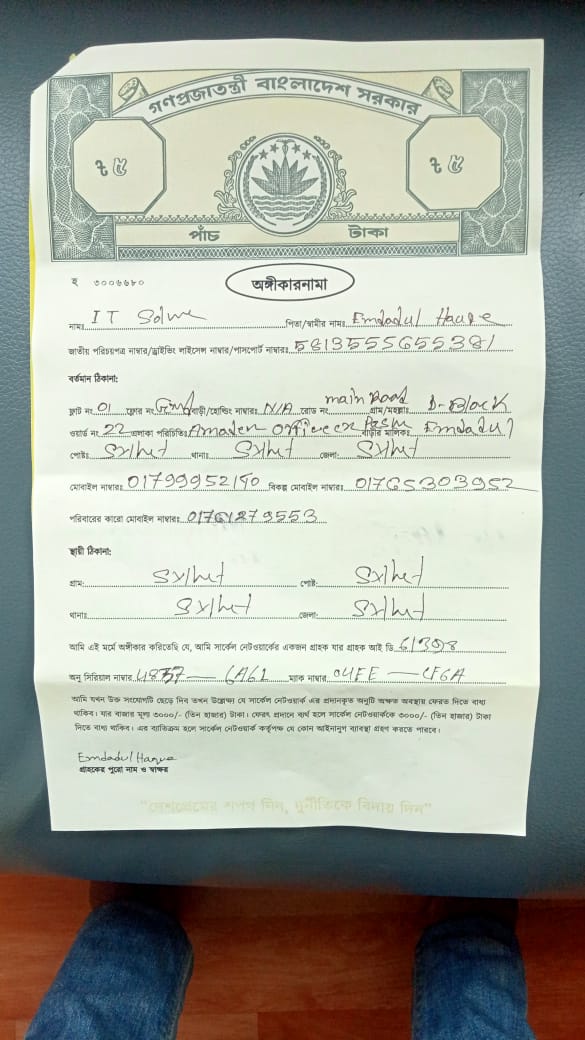 গণপ্রজাতন্ত্রী বাংলাদেশ সরকার
৳ ৫ ৳ ৫
পাঁচ টাকা
হ ৩০০৬৬৮০
অঙ্গীকারনামা
নামঃ IT Solve পিতা/স্বামীর নামঃ Emdadul Haque
জাতীয় পরিচয়পত্র নাম্বার/ড্রাইভিং লাইসেন্স নাম্বার/পাসপোর্ট নাম্বারঃ 5613555655381
বর্তমান ঠিকানা:
ফ্লাট নং 01 ফ্লোর নং বাড়ী/হোল্ডিং নাম্বারঃ N/A রোড নং main Road গ্রাম/মহল্লাঃ D-Block
ওয়ার্ড নং 22 এলাকা পরিচিতিঃ বাড়ীর মালিকঃ Emdadul
পোষ্টঃ Sylhet থানাঃ Sylhet জেলা: Sylhet
মোবাইল নাম্বারঃ 01799952190 বিকল্প মোবাইল নাম্বারঃ 01765303952
পরিবারের কারো মোবাইল নাম্বারঃ
স্থায়ী ঠিকানা:
গ্রাম: Sylhet পোষ্ট: Sylhet
থানাঃ Sylhet জেলা: Sylhet
আমি এই মর্মে অঙ্গীকার করিতেছি যে, আমি সার্কেল নেটওয়ার্কের একজন গ্রাহক যার গ্রাহক আই ডি
অনু সিরিয়াল নাম্বার 4857 — 6A61 ম্যাক নাম্বার 04EE — CF6A
আমি যখন উক্ত সংযোগটি ছেড়ে দিব তখন উল্লেক্ষ্য যে সার্কেল নেটওয়ার্ক এর প্রদানকৃত অনুটি অক্ষত অবস্থায় ফেরত দিতে বাধ্য
থাকিব। যার বাজার মূল্য ৩০০০/- (তিন হাজার) টাকা। ফেরৎ প্রদানে ব্যর্থ হলে সার্কেল নেটওয়ার্ককে ৩০০০/- (তিন হাজার) টাকা
দিতে বাধ্য থাকিব। এর ব্যতিক্রম হলে সার্কেল নেটওয়ার্ক কর্তৃপক্ষ যে কোন আইনানুগ ব্যাবস্থা গ্রহণ করতে পারবে।
Emdadul Haque
গ্রাহকের পুরো নাম ও স্বাক্ষর
"দেশপ্রেমের শপথ নিন, দুর্নীতিকে বিদায় দিন"